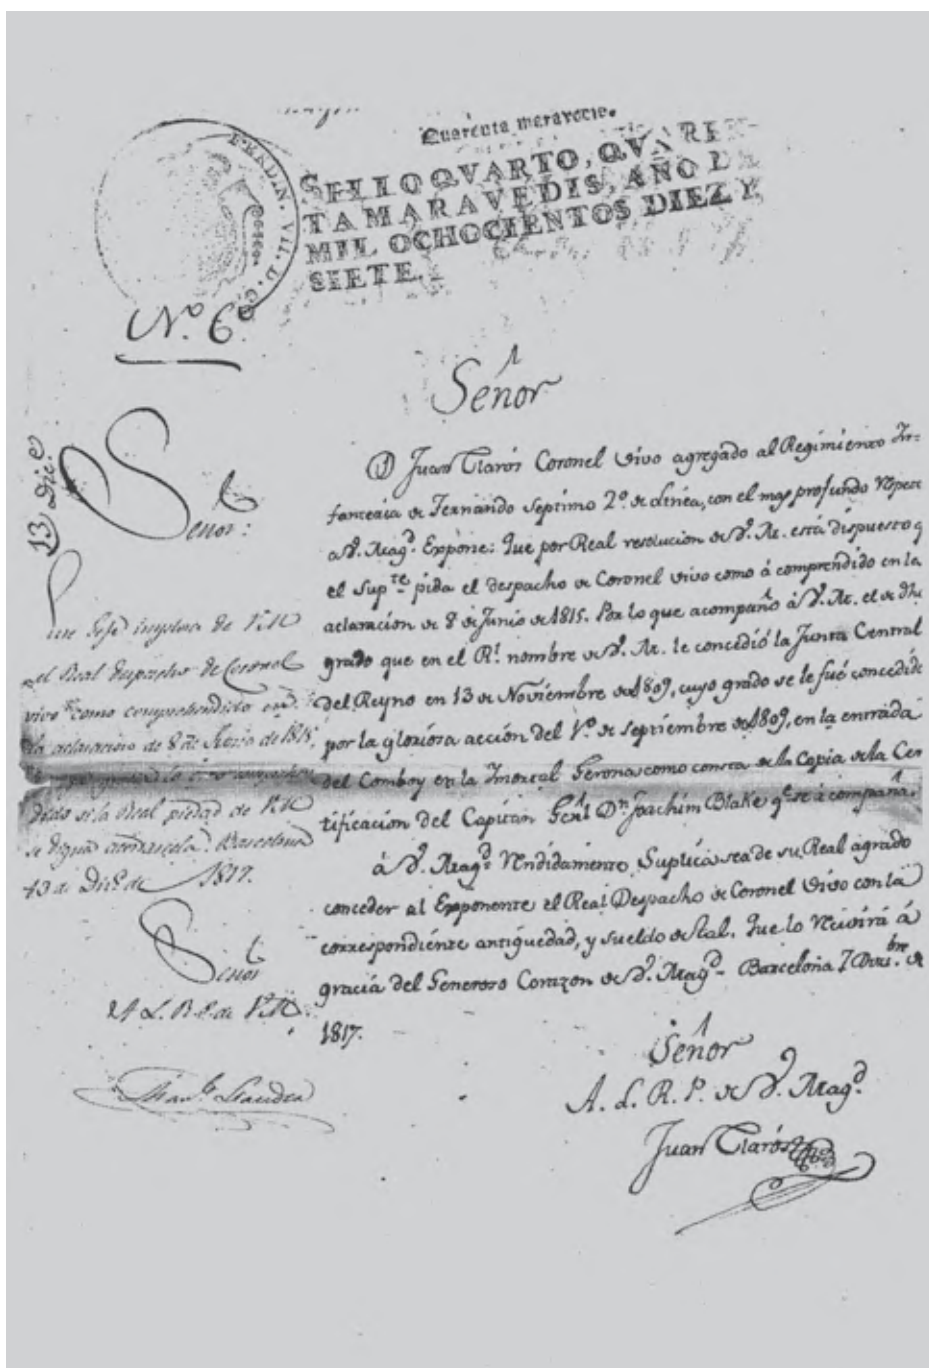 Quarenta maravedis.
SELLO QVARTO, QVAREN-
TA MARAVEDIS, AÑO DE
MIL OCHOCIENTOS DIEZ Y
SIETE.
FERDIN. VII. D. G.
N.º 6º
Señor
Dn Juan Clarós Coronel vivo agregado al Regimiento In-
fanteria de Fernando Septimo 2º. de Linéa, con el mas profundo respeto
a V. Magd. Expone: Que por Real resolucion de V. M. está dispuesto q
el Supte. pida el despacho de Coronel vivo como á comprendido en la
aclaración de 8 de Junio de 1815. Por lo que acompaña á V. M. el de dho
grado que en el Rl. nombre de V. M. le concedió la Junta Central
del Reyno en 13 de Noviembre de 1809, cuyo grado se le fué concedido
por la gloriosa acción del 1º. de Septiembre de 1809, en la entrada
del Comboy en la Imortal Gerona, como consta de la Copia de la Cer
tificacion del Capitán Genl. Dn. Joachim Blake qe. se acompaña.
á V. Magd. Rendidamente Suplica sea de su Real agrado
conceder al Exponente el Real Despacho de Coronel Vivo con la
correspondiente antigüedad, y sueldo de tal. Que lo recivirá á
gracia del Generoso Corazon de V. Magd. Barcelona 7 Dbre. de
1817.
Señor
A. L. R. P. de V. Magd.
Juan Clarós
13 Dice
Señor:
Este Gefe implora de V.M.
el Real despacho de Coronel
vivo como comprehendido en
la aclaracion de 8 de Junio de 1815,
dido si la Real piedad de V.M.
se digna Barcelona
13 de Dice. de 1817.
Señor
A L. R. P. de V.M.
Manl. Llauder